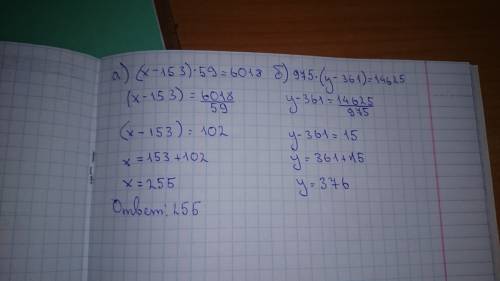 а) (x-153)·59=6018
(x-153)=6018/59
(x-153)=102
x=153+102
x=255
Ответ: 255
б) 975·(y-361)=14625
y-361=14625/975
y-361=15
y=361+15
y=376